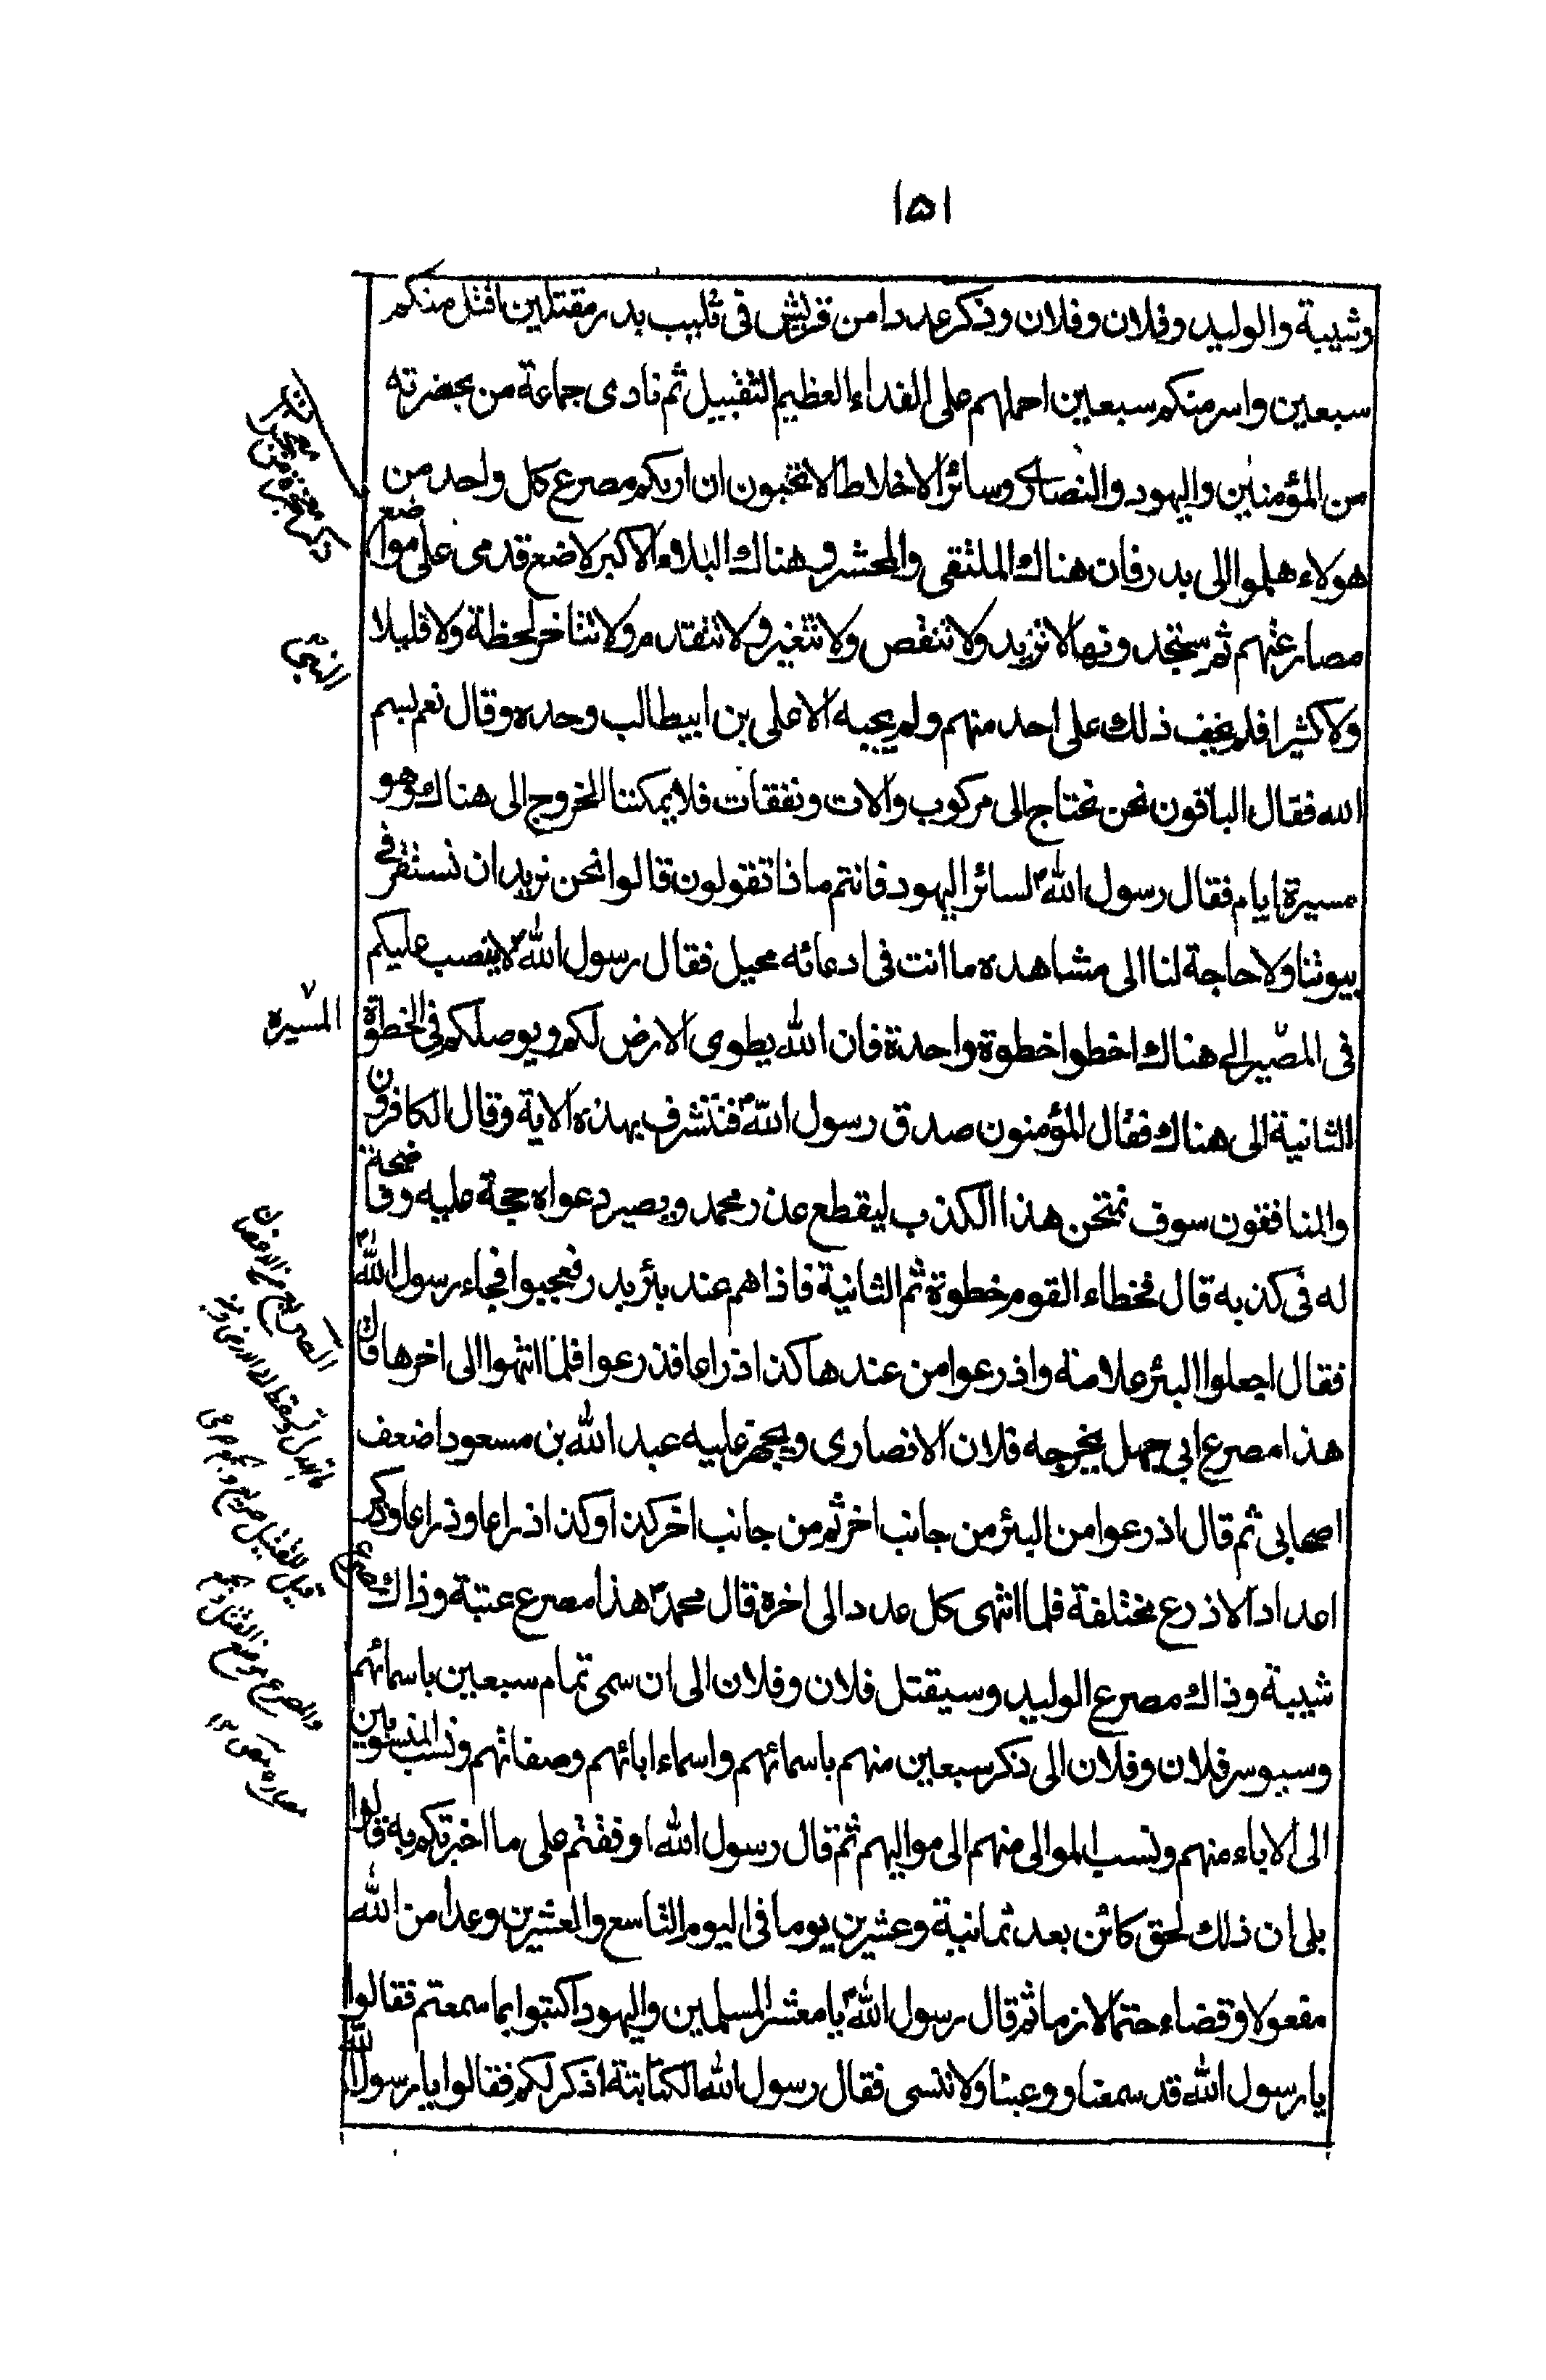 ١٥١
وشيبة والوليد وفلان وفلان وذكر عددا من قريش في قليب بدر مقتلين اقتل منكم
سبعين واسر منكم سبعين احملهم على الفداء العظيم الثقيل ثم نادى جماعة من بحضرته
من المؤمنين واليهود والنصارى وسائر الاخلاط الا تحبون ان اريكم مصرع كل واحد من
هولاء هلموا الى بدر فان هناك الملتقى والمحشر وهناك البلاء الاكبر لاضع قدمى على مواضع
مصارعهم ثم ستجدونها لا تزيد ولا تنقص ولا تتغير ولا تتقدم ولا تتاخر لحظة ولا قليلا
ولا كثيرا فلم يخف ذلك على احد منهم ولم يجبه الا على بن ابيطالب وحده وقال نعم بسم
الله فقال الباقون نحن نحتاج الى مركوب والات ونفقات فلا يمكننا الخروج الى هناك وهو
مسيرة ايام فقال رسول الله لسائر اليهود فانتم ماذا تقولون قالوا نحن نريد ان نستقر في
بيوتنا ولا حاجة لنا الى مشاهده ما انت في ادعائه محيل فقال رسول الله لا ينصب عليكم
في المصير الى هناك اخطوا خطوة واحدة فان الله يطوى الارض لكم ويوصلكم في الخطوة
الثانية الى هناك فقال المؤمنون صدق رسول الله فنتشرف بهذه الاية وقال الكافرون
والمنافقون سوف نمتحن هذا الكذب ليقطع عذر محمد ويصير دعواه حجة عليه وفاضحة
له في كذبه قال فخطاء القوم خطوة ثم الثانية فاذا هم عند بئر بدر فعجبوا فجاء رسول الله
فقال اجعلوا البئر علامة واذرعوا من عندها كذا ذراعا فذرعوا فلما انتهوا الى اخرها قال
هذا مصرع ابي جهل يخرجه فلان الانصارى ويجهز عليه عبد الله بن مسعود اضعف
اصحابي ثم قال اذرعوا من البئر من جانب اخر ثم من جانب اخر كذا وكذا ذراعا وذراعا وذكر
اعداد الاذرع مختلفة فلما انتهى كل عدد الى اخره قال محمد هذا مصرع عتبة وذاك مصرع
شيبة وذاك مصرع الوليد وسيقتل فلان وفلان الى ان سمى تمام سبعين باسمائهم
وسيوسر فلان وفلان الى ذكر سبعين منهم باسمائهم واسماء ابائهم وصفاتهم ونسب المنسوبين
الى الاباء منهم ونسب الموالى منهم الى مواليهم ثم قال رسول الله اوقفتم على ما اخبرتكم به قالوا
بلى ان ذلك لحق كائن بعد ثمانية وعشرين يوما في اليوم التاسع والعشرين وعدا من الله
مفعولا وقضاء حتما لازما ثم قال رسول الله يا معشر المسلمين واليهود اكتبوا بما سمعتم فقالوا
يا رسول الله قد سمعنا ووعينا ولا ننسى فقال رسول الله الكتابة اذكر لكم فقالوا يا رسول الله
المسيره